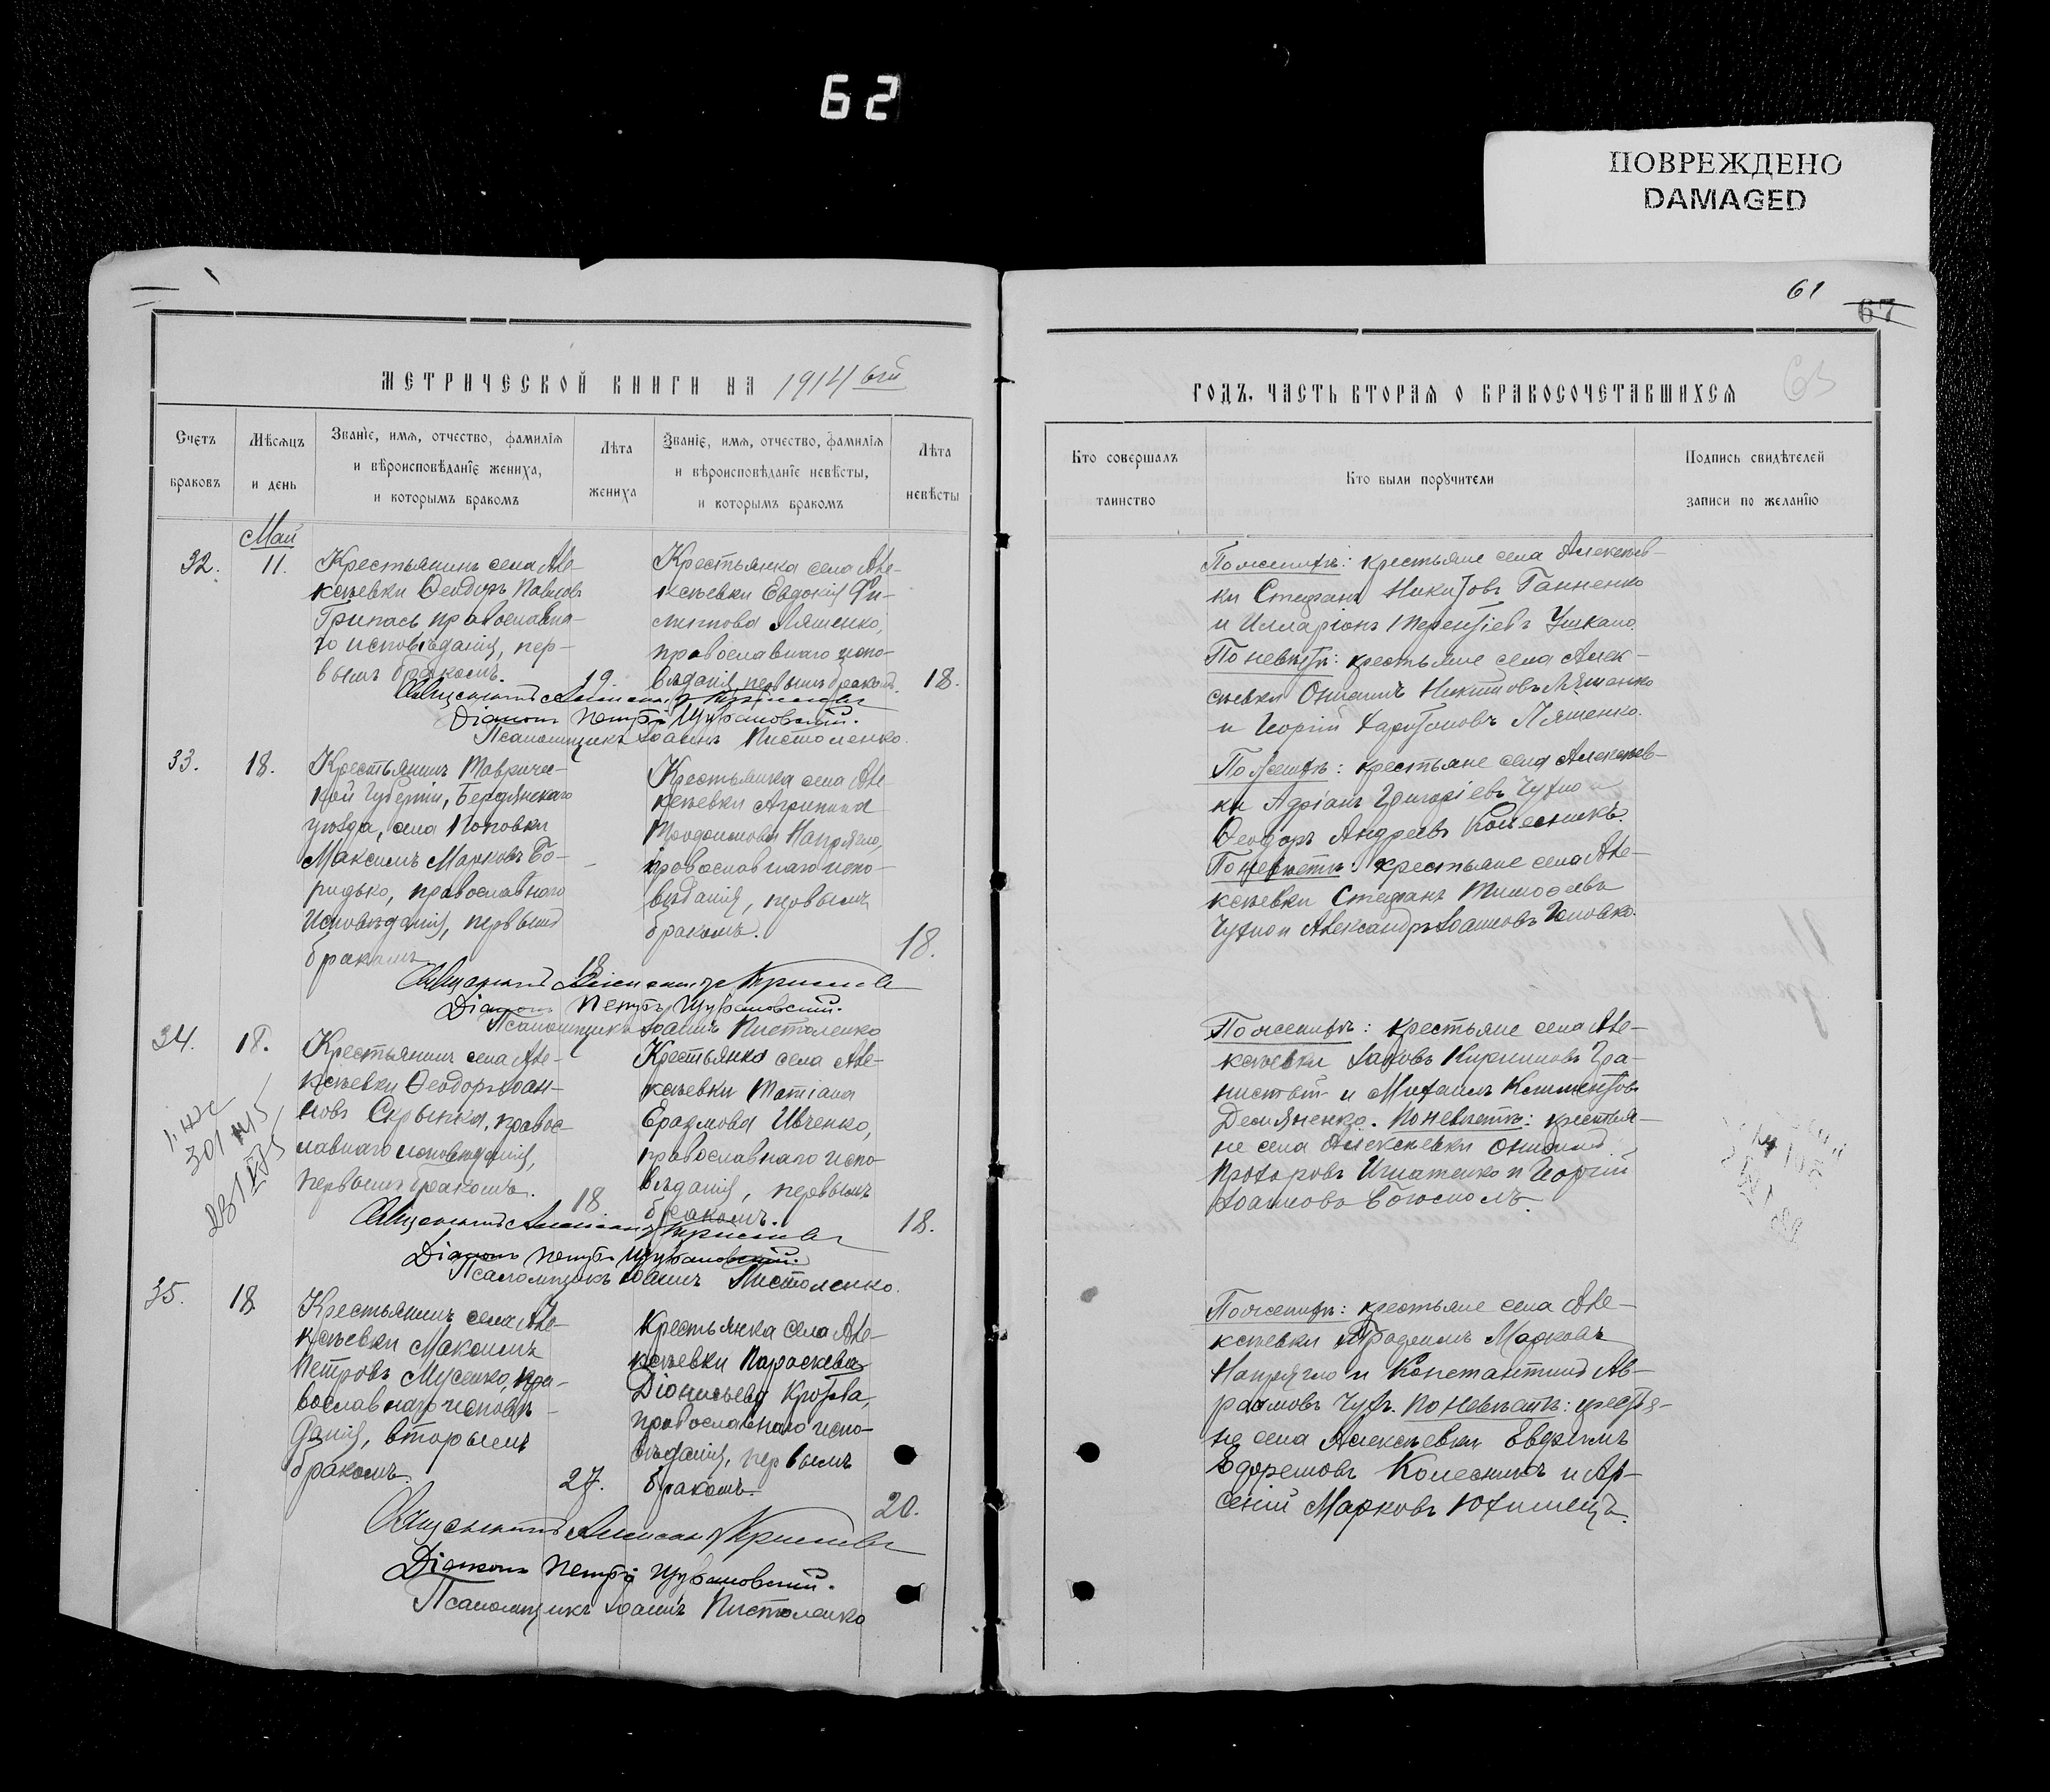 62
ПОВРЕЖДЕНО
DAMAGED
61
67
63
МЕТРИЧЕСКОЙ КНИГИ НА 1914 ый
ГОДЪ, ЧАСТЬ ВТОРАЯ О БРАКОСОЧЕТАВШИХСЯ
Счетъ
браковъ
Мѣсяцъ
и день
Званіе, имя, отчество, фамилія
и вѣроисповѣданіе жениха,
и которымъ бракомъ
Лѣта
жениха
Званіе, имя, отчество, фамилія
и вѣроисповѣданіе невѣсты,
и которымъ бракомъ
Лѣта
невѣсты
Кто совершалъ
таинство
Кто были поручители
Подпись свидѣтелей
записи по желанію
Май
32.
11.
Крестьянинъ села Але-
ксѣевки Ѳеодоръ Павловъ
Трипасъ православна-
го исповѣданія, пер-
вымъ бракомъ.
19.
Крестьянка села Але-
ксѣевки Евдокія Фи-
липпова Ляшенко,
православнаго испо-
вѣданія первымъ бракомъ.
18.
Священникъ
Діаконъ Петръ
Псаломщикъ Іоаннъ Пистоленко.
По женихѣ: крестьяне села Алексѣев-
ки Стефанъ Никитовъ Ганненко
и Илларіонъ Терентіевъ Ушкало.
По невѣстѣ: крестьяне села Алек-
сѣевки Онисимъ Никитовъ Ляшенко
и Георгій Харитоновъ Ляшенко.
33.
18.
Крестьянинъ Тавричес-
кой Губерніи, Бердянскаго
уѣзда, села Поповки
Максимъ Марковъ Бо-
ридько, православнаго
исповѣданія, первымъ
бракомъ
18
Крестьянка села Але
ксѣевки Агриппина
Напрягло,
православнаго испо-
вѣданія, первымъ
бракомъ.
18.
Священникъ
Діаконъ Петръ
Псаломщикъ Іоаннъ Пистоленко
По женихѣ: крестьяне села Алексѣев-
ки Адріанъ Григоріевъ Чухно и
Ѳеодоръ Андреевъ Колесникъ.
По невѣстѣ: крестьяне села Але-
ксѣевки Стефанъ Тимоѳеевъ
Чухно и Александръ Іоанновъ Головко.
34.
18.
Крестьянинъ села Але-
ксѣевки Ѳеодоръ Іоан-
новъ Скрынка, правос-
лавнаго исповѣданія,
первымъ бракомъ.
18
Крестьянка села Але-
ксѣевки Татіана
Еразмова Ивченко,
православнаго испо-
вѣданія, первымъ
бракомъ.
18.
Священникъ
Діаконъ Петръ
Псаломщикъ Іоаннъ Пистоленко.
По женихѣ: крестьяне села Але-
ксѣевки Іаковъ Кирилловъ Гра-
нистый и Михаилъ Климентовъ
Демяненко. По невѣстѣ: крестья-
не села Алексѣевки Онисимъ
Прохоровъ Игнатенко и Георгій
Іоанновъ
35.
18
Крестьянинъ села Але-
ксѣевки Максимъ
Петровъ Мусенко, пра-
вославнаго исповѣ-
данія, вторымъ
бракомъ.
27.
Крестьянка села Але-
ксѣевки Параскева
Діонисьева
православнаго испо-
вѣданія, первымъ
бракомъ.
20.
Священникъ
Діаконъ Петръ
Псаломщикъ Іоаннъ Пистоленко
По женихѣ: крестьяне села Але-
ксѣевки Марковъ
Напрягло и Константинъ Ав-
раамовъ Чухъ. По невѣстѣ: крестья-
не села Алексѣевки Евфимъ
Колесникъ и Ар-
сеній Марковъ